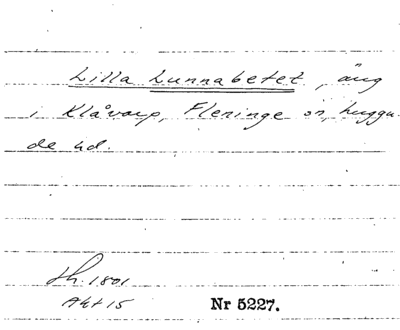 Lilla Lunnabetet, äng
i Klåvarp, Fleninge sn, Luggu-
de hd.
Sh. 1801
Akt 15
Nr 5227.